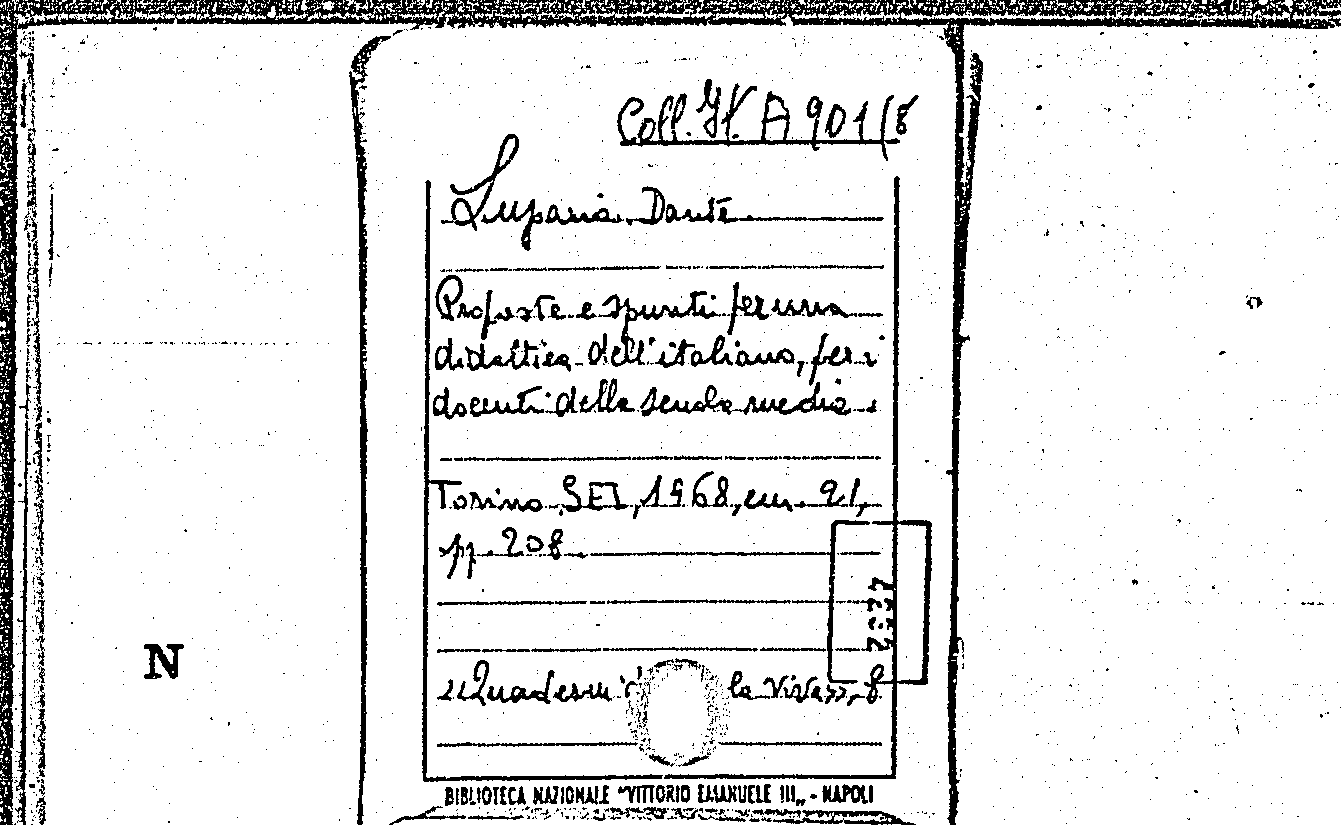 Coll. It. A 901/8
Luparia Dante
Proposte e spunti per una
didattica dell'italiano, per i
docenti della scuola media.
Torino, SEI, 1968, cm. 21,
pp. 208.
N
"Quaderni di la Viva", 8
BIBLIOTECA NAZIONALE "VITTORIO EMANUELE III„ - NAPOLI